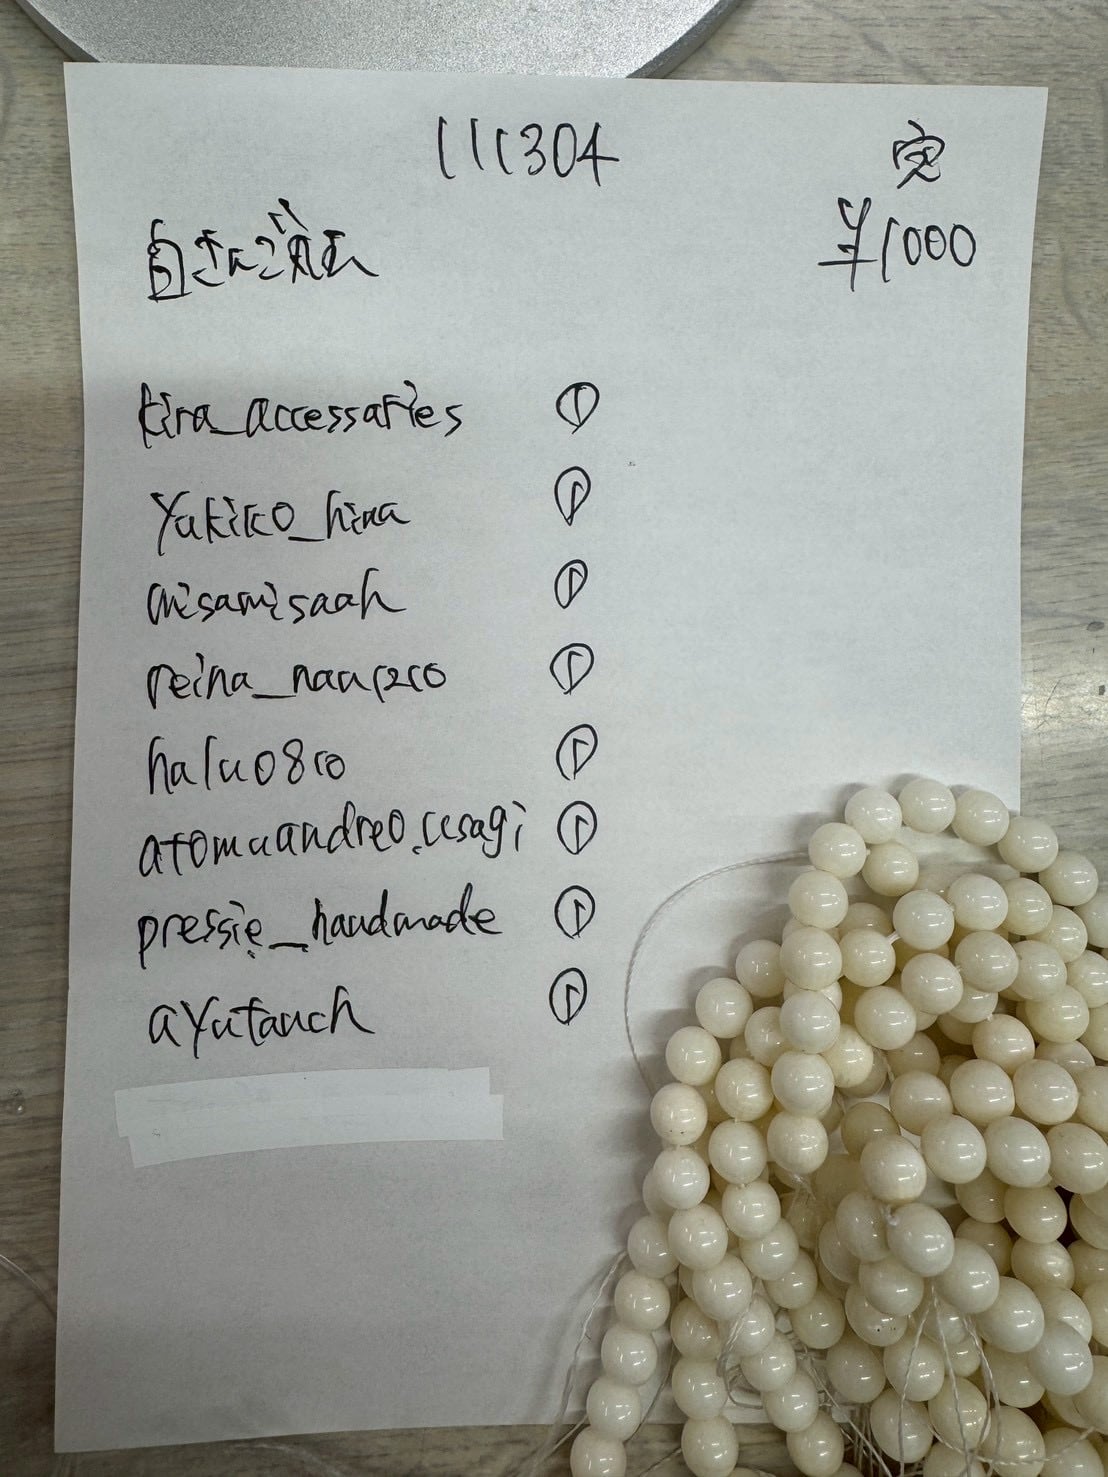 111304
完
¥1000
白さんご
kira_accessaries ①
yukiko_hina ①
misamisaah ①
reina_naar2co ①
halu08co ①
atomuandreo.usagi ①
pressie_handmade ①
ayutanch ①